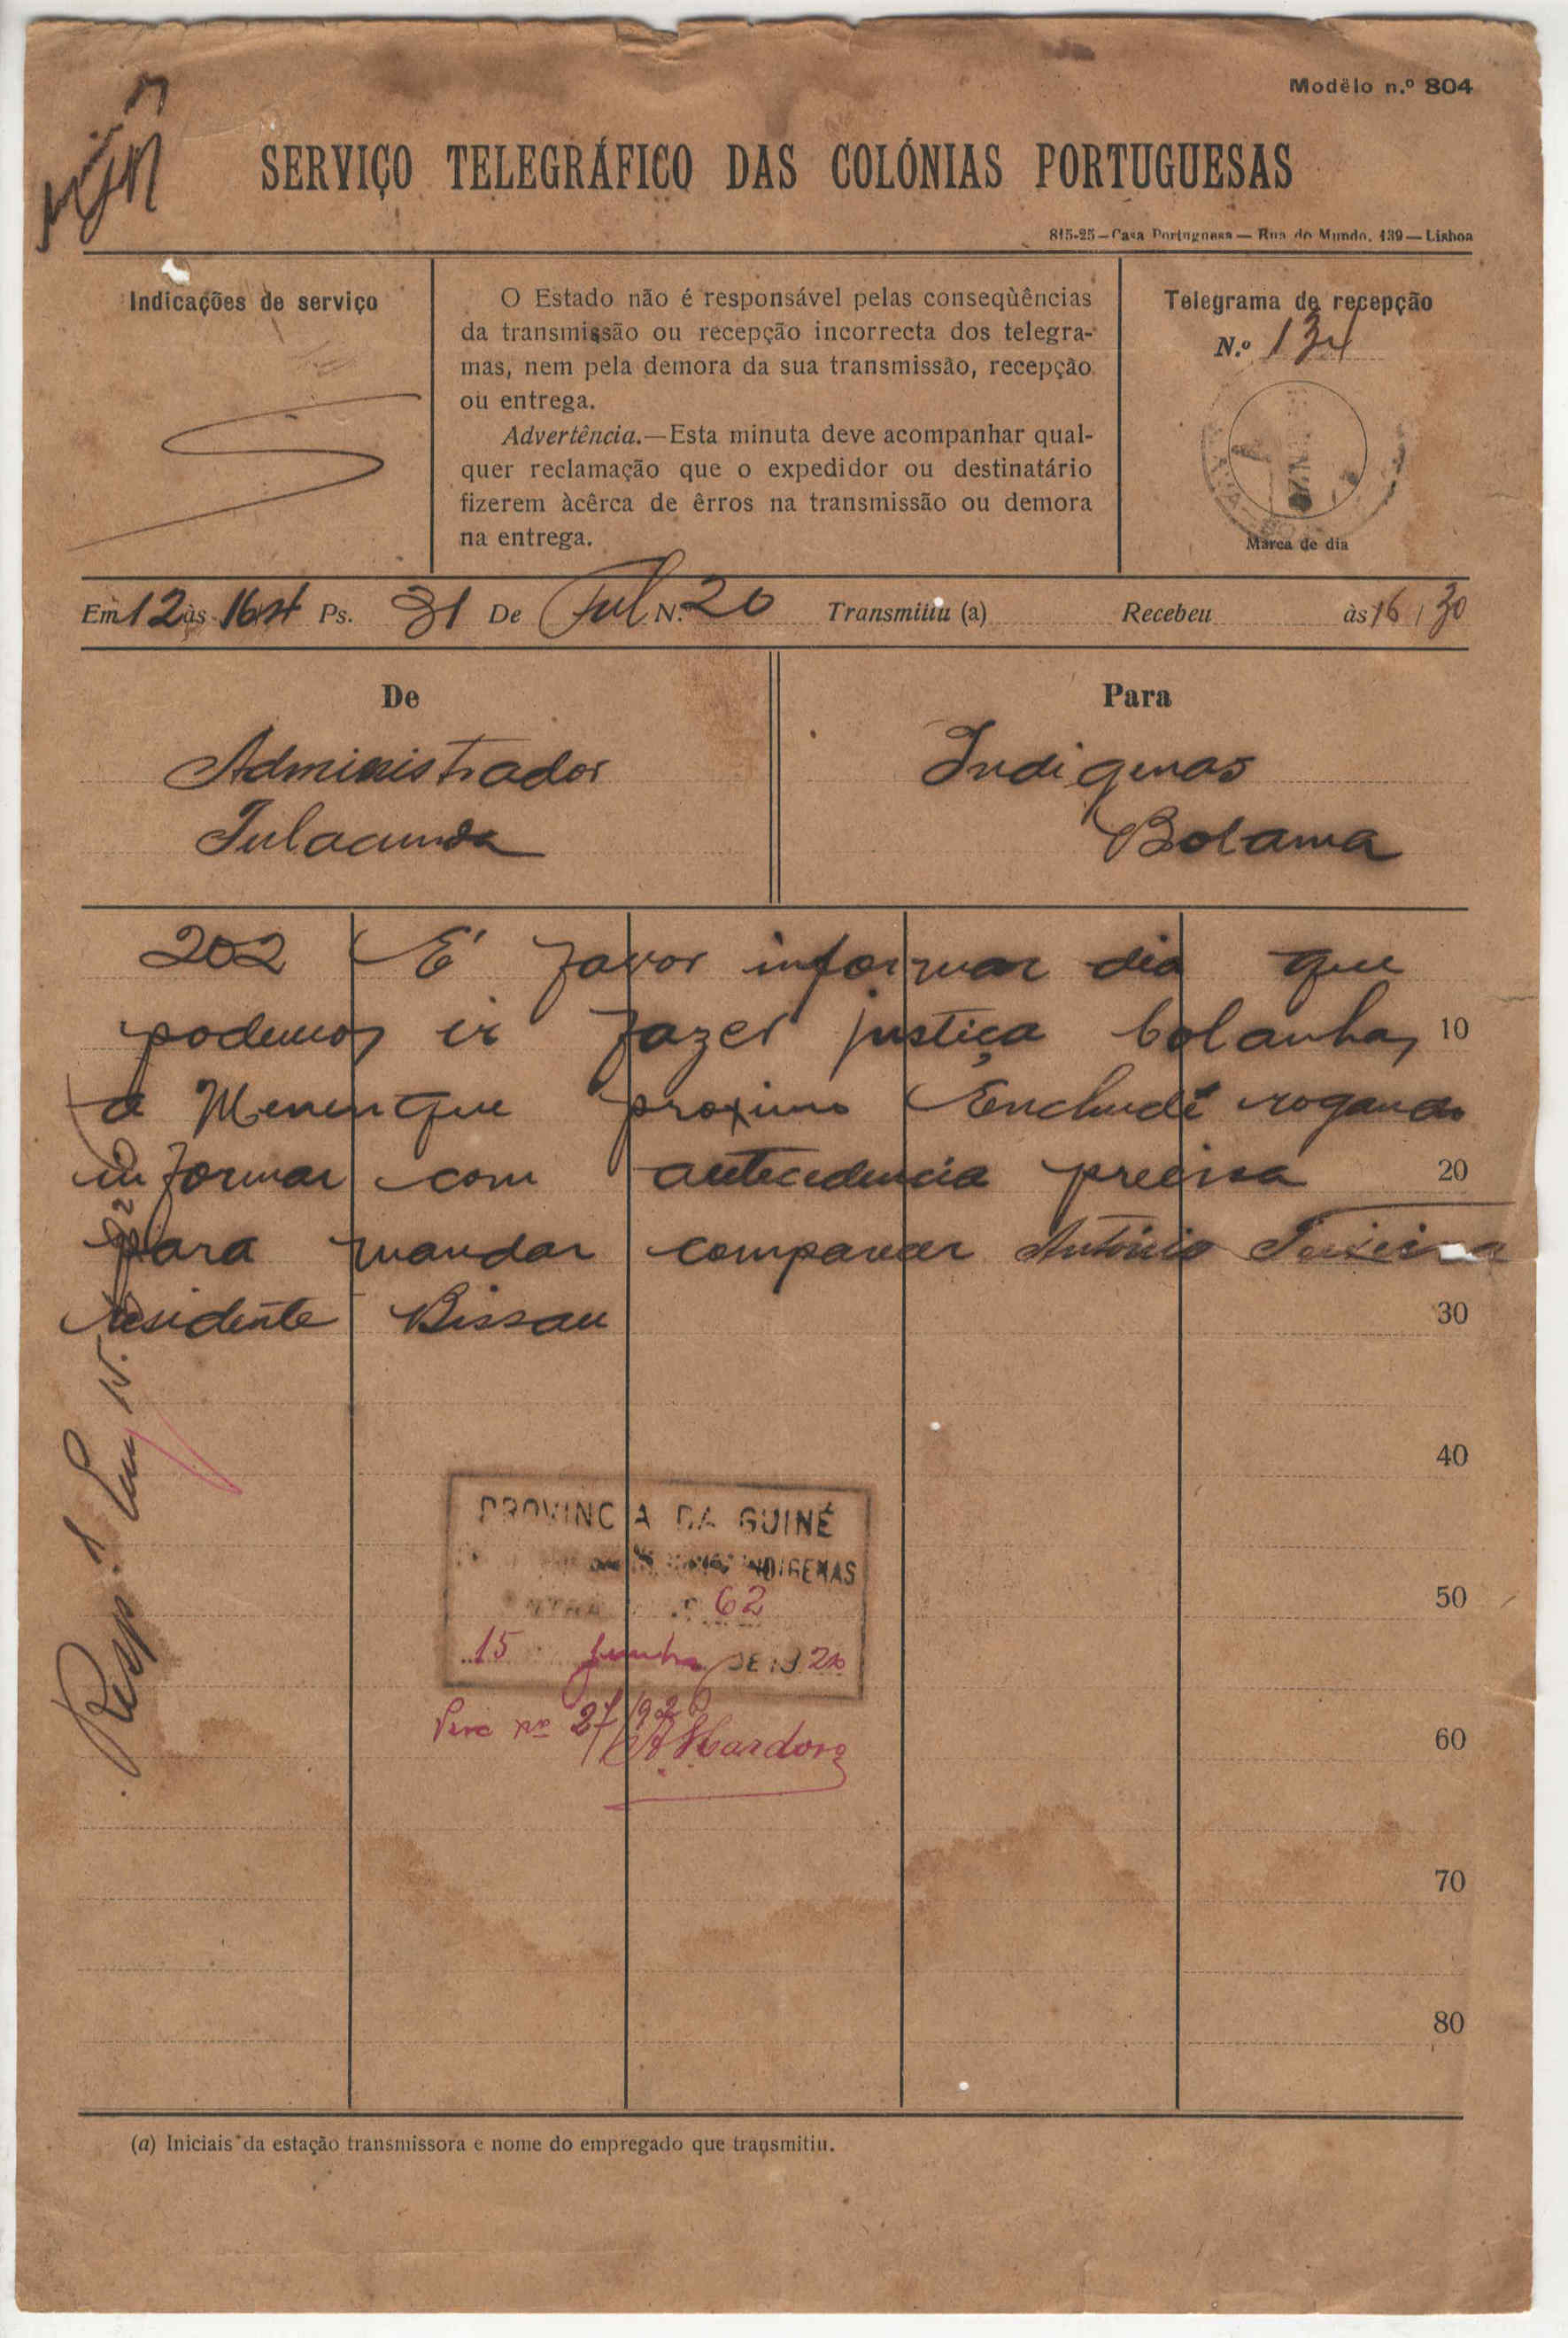 Modêlo n.º 804
SERVIÇO TELEGRÁFICO DAS COLÓNIAS PORTUGUESAS
815-25 — Casa Portuguesa — Rua do Mundo, 139 — Lisboa
Indicações de serviço
O Estado não é responsável pelas conseqùências
da transmissão ou recepção incorrecta dos telegra-
mas, nem pela demora da sua transmissão, recepção
ou entrega.
Advertência.—Esta minuta deve acompanhar qual-
quer reclamação que o expedidor ou destinatário
fizerem àcêrca de êrros na transmissão ou demora
na entrega.
Telegrama de recepção
N.º 134
Marca de dia
Em 12 às Ps. 31 De Ful N. 20 Transmitiu (a) Recebeu às 16/30
De
Administrador
Fulacunda
Para
Indigenas
Bolama
202 É favor informar dia que
podemos ir fazer justiça bolanha, 10
de Menenque proximo Enchudé rogando
informar com antecedencia precisa 20
para mandar comparecer António Teixeira
residente Bissau 30
40
50
60
70
80
Resp.
PROVINCIA DA GUINÉ
INDIGENAS
62
15 Junho DE 19
Proc nº 27/92
(a) Iniciais da estação transmissora e nome do empregado que transmitiu.